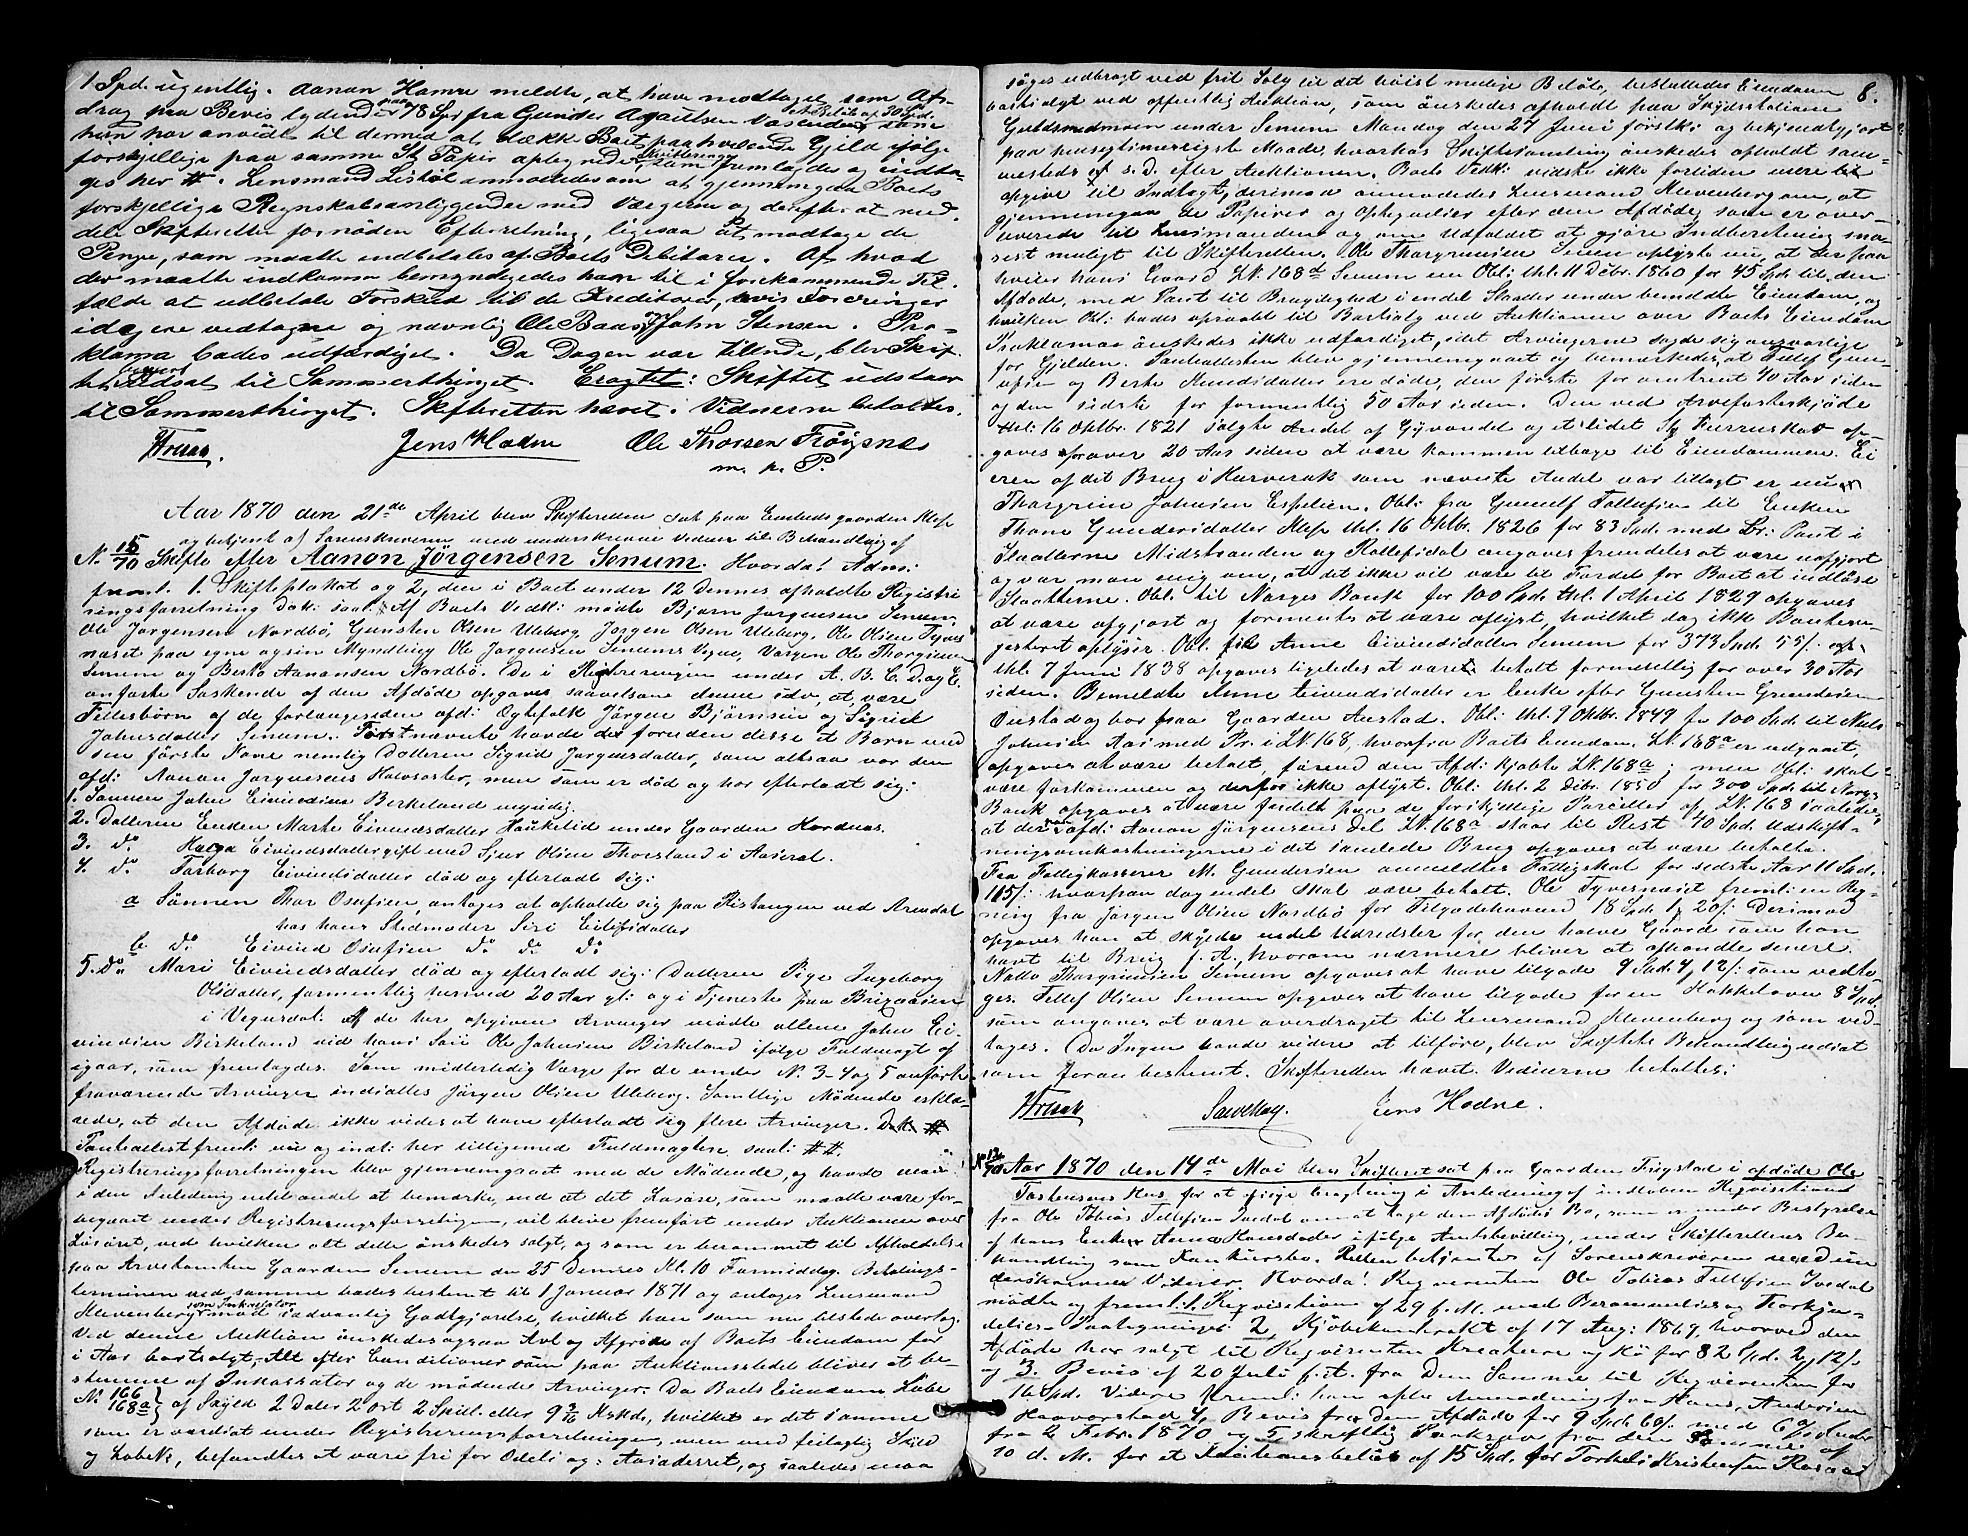 1 Spd. ugentlig. Aanon Hamre meldte, at have modtaget som Af-
drag paa Bevis lydende paa 78 Spd fra Gunder Aanulsen Vaslandsv et Beløb af 30 Spd.
hun har anvidt til dermed at dække Boet paahvilende Gjeld ifølge
forskjellige paa samme St. Papir optegnede Kvitteringer, som fremlagdes og indta-
ges her #. Lensmand Liskøl anmodedes om at gjennemgaae Boets
forskjellige Regnskabsanliggender med Vægerne og derefter at med-
dele Skifteretten fornøden Efterretning, ligesaa at modtage de
Penge, som maatte indbetales af Boets Debitorer. Af hvad
der maatte indkomme bemyndigedes han til i forekommende Til-
fælde at udbetale Forskud til de Kreditorer, hvis Fordringer
idag ere vedtagne og navnlig Ole Baas og John Stensen. Pro-
klama bades udfærdiget. Da Dagen var tilende, blev Skif-
tet udsat til Sommerthinget. Eragtet: Skiftet udstaar
til Sommerthinget. Skifteretten hævet. Vidnerne betaltes.
Jens Hodne Ole Thorsen Frøysnes
m. p. P.
Aar 1870 den 21de April blev Skifteretten sat paa Enkeds gaarden Klep
og betjent af Sorenskriveren med underskrevne Vidner til Behandling af
N. 15/70 Skifte efter Aanon Jörgensen Senum. Hvorda! Adm:
freml. 1. Skifteplakat og 2, den i Boet under 12 Dennes afholdte Registre-
ringsforretning Dok: saal. Af Boets Vedk: mødte Bjørn Jørgensen Senum,
Ole Jørgensen Nordbö, Gunsten Olsen Uleberg, Jørgen Olsen Uleberg, Ole Olsen Tyves
næset paa egne og sin Myndling Ole Jørgensen Senums Vegne, Værgen Ole Thorgrimsen
Senum og Berto Aanonsen Nordbö. De i Registreringen under A. B. C. D. og E.
anførte Søskende af den Afdøde opgaves saavelsom denne selv, at være
Fællesbørn af de forlængesiden afd: Ægtefolk Jørgen Bjørnsen og Sigrid
Johnsdatter Senum. Førstnævnte havde desforuden disse et Barn med
sin første Kone nemlig Datteren Sigrid Jørgensdatter, som altsaa var den
afd: Aanon Jørgensens Halvsøster, men som er død og har efterladt sig:
1. Sønnen John Eivindsen Birkeland myndig.
2. Datteren Enken Marthe Eivindsdatter Haukelid under Gaarden Hordnes.
3. do Helga Eivindsdatter gift med Sjur Olsen Thorsland i Aaseral.
4. do Torborg Eivindsdatter død og efterladt sig:
a Sønnen Thor Osufsen, antages at opholde sig paa Kistangen ved Arendal
hos hans Stedmoder Siri Eilefsdatter
b do Eivind Osufsen do do do
5. do Mari Eivindsdatter død og efterladt sig: Datteren Pige Ingeborg
Olsdatter, formentlig henved 20 Aar gl: og i Tjeneste paa Brigaasen
i Vegusdal. Af de her opgivne Arvinger mødte allene John Ei-
vindsen Birkeland ved hans Søn Ole Johnsen Birkeland ifølge Fuldmagt af
igaar, som fremlagdes. Som midlertidig Værge for de under N. 3-4 og 5 anførte
fraværende Arvinger indkaldtes Jørgen Olsen Uleberg. Samtlige Mødende erklæ-
rede, at den Afdøde ikke vides at have efterladt sig flere Arvinger.
Panteattest freml: nu og indt: her tilligemed Fuldmagten saal: ##.
Registreringsforretningen blev gjennemgaaet med de Mødende, og havde man
i den Anledning intet andet at bemærke, end at det Løsøre, som maatte være for-
begaaet under Registreringsforretningen, vil blive fremført under Auktionen over
Løsøret, ved hvilken alt dette ønskedes solgt, og som er berammet til Afholdelse
paa Arvetomten Gaarden Senum den 25 Dennes Kl. 10 Formiddag. Betalings-
terminen ved samme bades bestemt til 1 Januar 1871 og antoges Lensmand
Klevenberg som Inkassator mod sædvanlig Godtgjørelse, hvilket han som nu tilstede overtog.
Ved denne Auktion ønskedes ogsaa Avl og Afgrøde af Boets Eiendom for
i Aar bortsolgt, Alt efter Conditioner som paa Auktionsstedet bliver at be-
stemme af Inkassator og de mødende Arvinger. Da Boets Eiendom Løbe
N. 166/168a } af Skyld 2 Daler 2 ort 2 Skill. eller 9 3/16 Hskd., hvilket er det samme
som er værdiat under Registreringsforretningen, men med feilagtig Skyld
og Løbe N., befandtes at være fri for Odels og Aasædesret, og saaledes maa
8.
søges udbragt ved frit Salg til det høist mulige Beløb, besluttedes Eiendommen
bortsolgt ved offentlig Auktion, som ønskedes afholdt paa Skydsstationen
Guldsmedmoen under Senum Mandag den 27 Juni førstk: og bekjendtgjort
paa hensigtsmessigste Maade, hvorhos Skiftesamling ønskedes afholdt sam-
mesteds s. D. efter Auktionen. Boets Vedk: vidste ikke fortiden mere at
opgive til Indtægt, derimod anmodedes Lensmand Klevenberg om, at
gjennemgaa de Papirer og Optegnelser efter den Afdøde, som er over-
leverede til Lensmanden og om Udfaldet at gjøre Indberetning sna-
rest muligt til Skifteretten. Ole Thorgrimsen Senum oplyste nu, at der paa
hviler hans Gaard LN. 168b Senum en Obl: thl. 11 Dcbr. 1860 for 45 Spd. til den
Afdøde, med Pant til Brugelighed i endel Slaatter under bemeldte Eiendom, og
hvilken Obl: bades opraabt til Bortsalg ved Auktionen over Boets Eiendom.
Proklama ønskedes ikke udfærdiget, idet Arvingerne sagde sig ansvarlige
for Gjelden. Panteattesten blev gjennemgaaet og bemærkedes, at Tellef Gun-
ufsen og Berthe Knudsdatter ere døde, den første for omtrent 40 Aar siden
og den sidste for formentlig 50 Aar siden. Den ved Arvefæsteskjøde
thl: 16 Oktbr. 1821 solgte Andel af Gyvandet og et lidet St. Furruskov op-
gaves for over 20 Aar siden at være kommen tilbage til Eiendommen. Ei-
eren af det Brug i Hurverak som nævnte Andel var tillagt er nu
Thorgrim Johnsen Espelien. Obl: fra Gunulf Tellefsen til Enken
Thone Gundersdatter Klep thl. 16 Oktbr. 1826 for 83 Spd. med Br: Pant i
Slaatterne Midstranden og Rollefsdal angaves fremdeles at være uopgjort
og var man enig om, at det ikke vil være til Fordel for Boet at indløse
Slaatterne. Obl. til Norges Bank for 100 Spd. thl. 1 April 1829 opgaves
at være opgjort og formentes at være aflyst, hvilket dog ikke Pantere-
gisteret oplyser. Obl. til Anne Eivindsdatter Senum for 373 Spd. 55/.
thl. 7 Juni 1838 opgaves ligeledes at være betalt formentlig for over 30 Aar
siden. Bemeldte Anne Eivindsdatter er Enke efter Gunsten Gundersen
Austad og bor paa Gaarden Austad. Obl: thl. 9 Oktbr. 1849 for 100 Spd. til Niels
Johnsen Aas med Pr. i LN. 168, hvorfra Boets Eiendom LN. 168a er udgaaet,
opgaves at være betalt, førend den Afd: kjøbte LN. 168a; men Obl: skal
være forkommen og derfor ikke aflyst. Obl: thl. 2 Dcbr. 1850 for 300 Spd. til Norges
Bank opgaves at være fordelt paa de forskjellige Parceller af LN. 168 saaledes,
at der paa afd: Aanon Jørgensens Del LN. 168a staar til Rest 40 Spd. Udskift-
ningsomkostningerne i det samlede Brug opgaves at være betalte.
Fra Fattigkasserer M. Gundersen anmeldtes Fattigskat for sidste Aar 11 Spd.
115/: hvorpaa dog endel skal være betalt. Ole Tyvesnæset freml: en Reg-
ning fra Jørgen Olsen Nordbö for Tilgodehavend 18 Spd. 1 20/: Derimod
opgaves han at skylde endel Udredsler for den halve Gaard som han
havt til Brug f. A., hvorom nærmere bliver at afhandle senere.
Natto Thorgrimsen Senum opgaves at have tilgode 9 Spd. 4, 12/: som vedto-
ges. Tellef Olsen Senum opgaves at have tilgode for en Kakkelovn 8 Spd.
som angaves at være overdraget til Lensmand Klevenberg og som ved-
tages. Da Ingen havde videre at tilføre, blev Skiftets Behandling udsat
som foran bestemt. Skifteretten hævet. Vidnerne betaltes:
Jens Hodne.
N. 12/70 Aar 1870 den 14de Mai blev Skifteret sat paa Gaarden Frigstad i afdøde Ole
Torstensens Hus for at give Eragtning i Anledning af indkommen Reqvisition
fra Ole Tobias Tellefsen Ivedal om at tage den Afdødes Bo, som er under Bestyrelse
af hans Enke Anne Hansdatter ifølge Amtsbevilling, under Skifterettens Be-
handling som Konkursbo. Retten betjentes af Sorenskriveren med un-
derskrevne Vidner. Hvorda! Reqvirenten Ole Tobias Tellefsen Ivedal
mødte og freml. 1. Reqvisition af 29 f. M. med Berammelses og Forkyn-
delses Paategninger 2, Kjöbekontrakt af 17 Aug: 1869, hvorved den
Afdøde har solgt til Reqvirenten Kreature og Hö for 82 Spd. 2, 12/:
og 3. Bevis af 20 Juli f. A. fra Dem Samme til Reqvirenten for
16 Spd. Videre freml: han efter Anmodning fra Hans Andersen
Haaverstad 4, Bevis fra den Afdøde for 9 Spd. 60/: med 6 o/o Renter
fra 2 Febr. 1870 og 5 skriftlig Paakrav fra den Samme af
10 d. M. for et Lösöreauktionsbeløb af 15 Spd. for Torkel Kristensen Rosaas